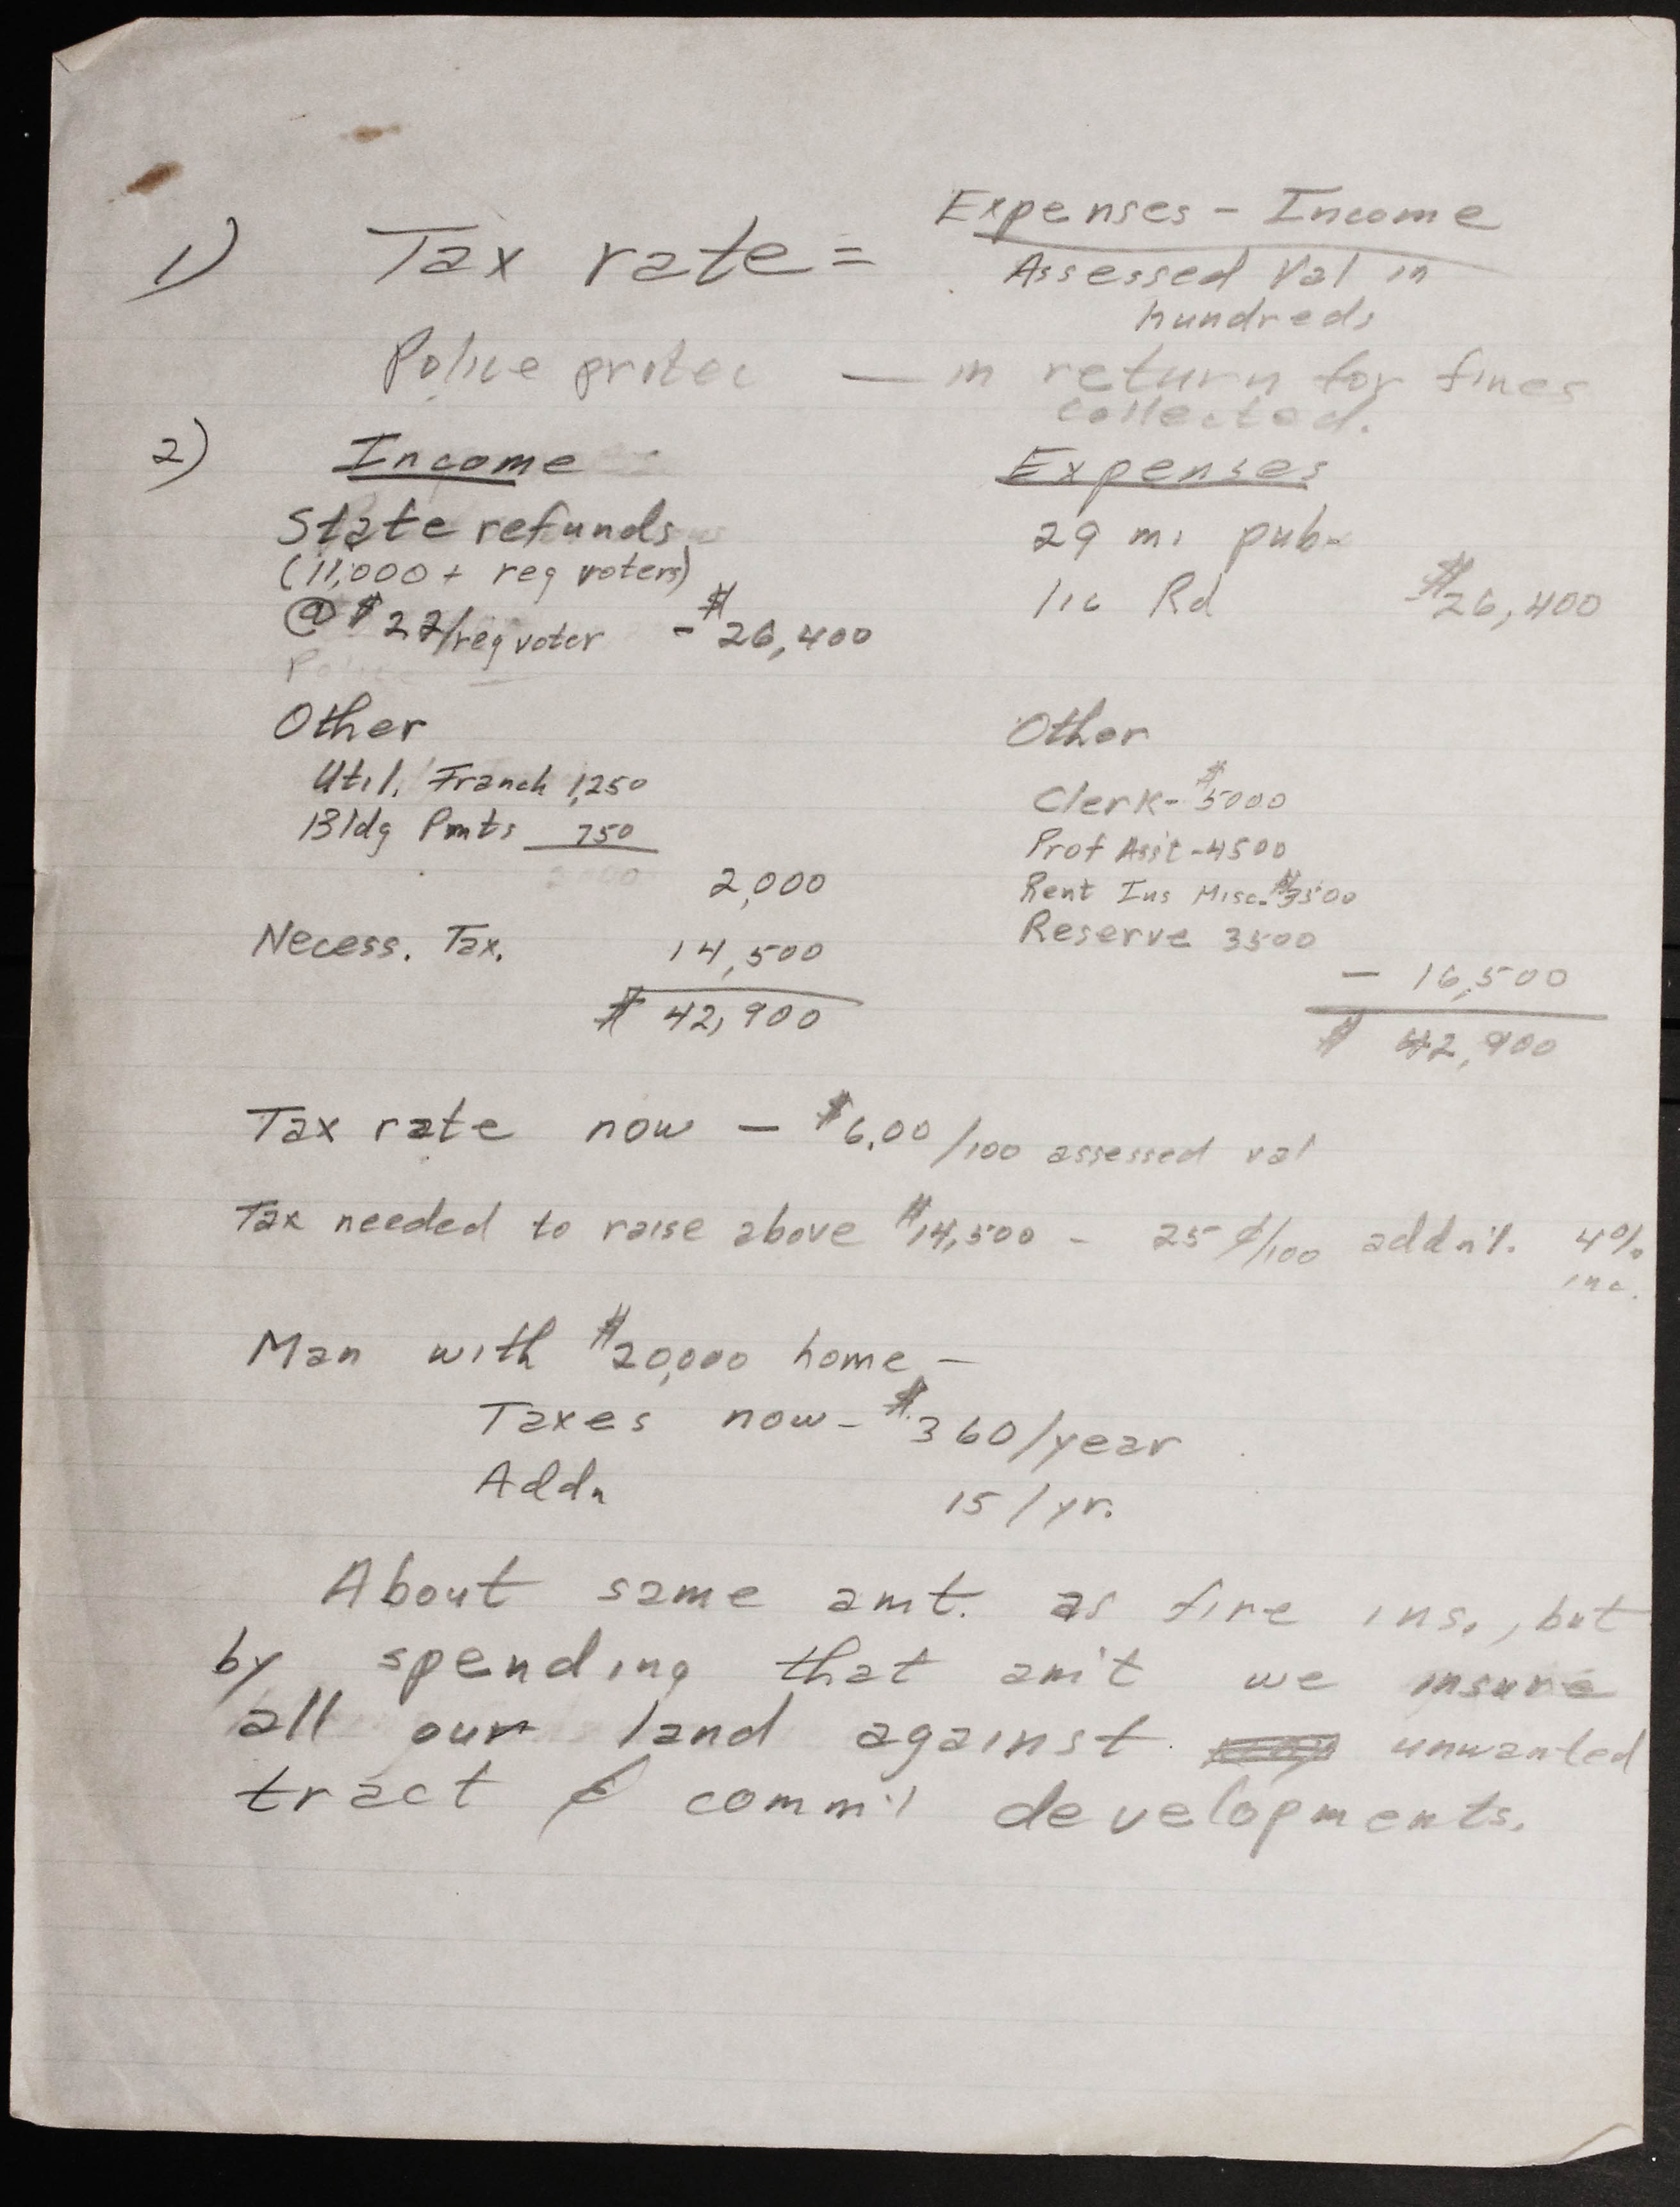 1) Tax rate = Expenses - Income
Assessed Val in
hundreds
Police protec — in return for fines
collected.
2) Income Expenses
State refunds 29 mi pub-
(11,000 + reg voters) lic Rd $26,400
@ $22/reg voter - $26,400
Other Other
Util. Franch 1,250 Clerk- $5000
Bldg Pmts 750 Prof Asst - 4500
2,000 Rent Ins Misc. $3500
Necess. Tax. 14,500 Reserve 3500
- 16,500
$42,900 $42,900
Tax rate now — $6.00/100 assessed val
Tax needed to raise above $14,500 - 25¢/100 addn'l. 4%
inc.
Man with $20,000 home -
Taxes now - $360/year
Addn 15/yr.
About same amt. as fire ins., but
by spending that am't we insure
all our land against unwanted
tract & comm'l developments.